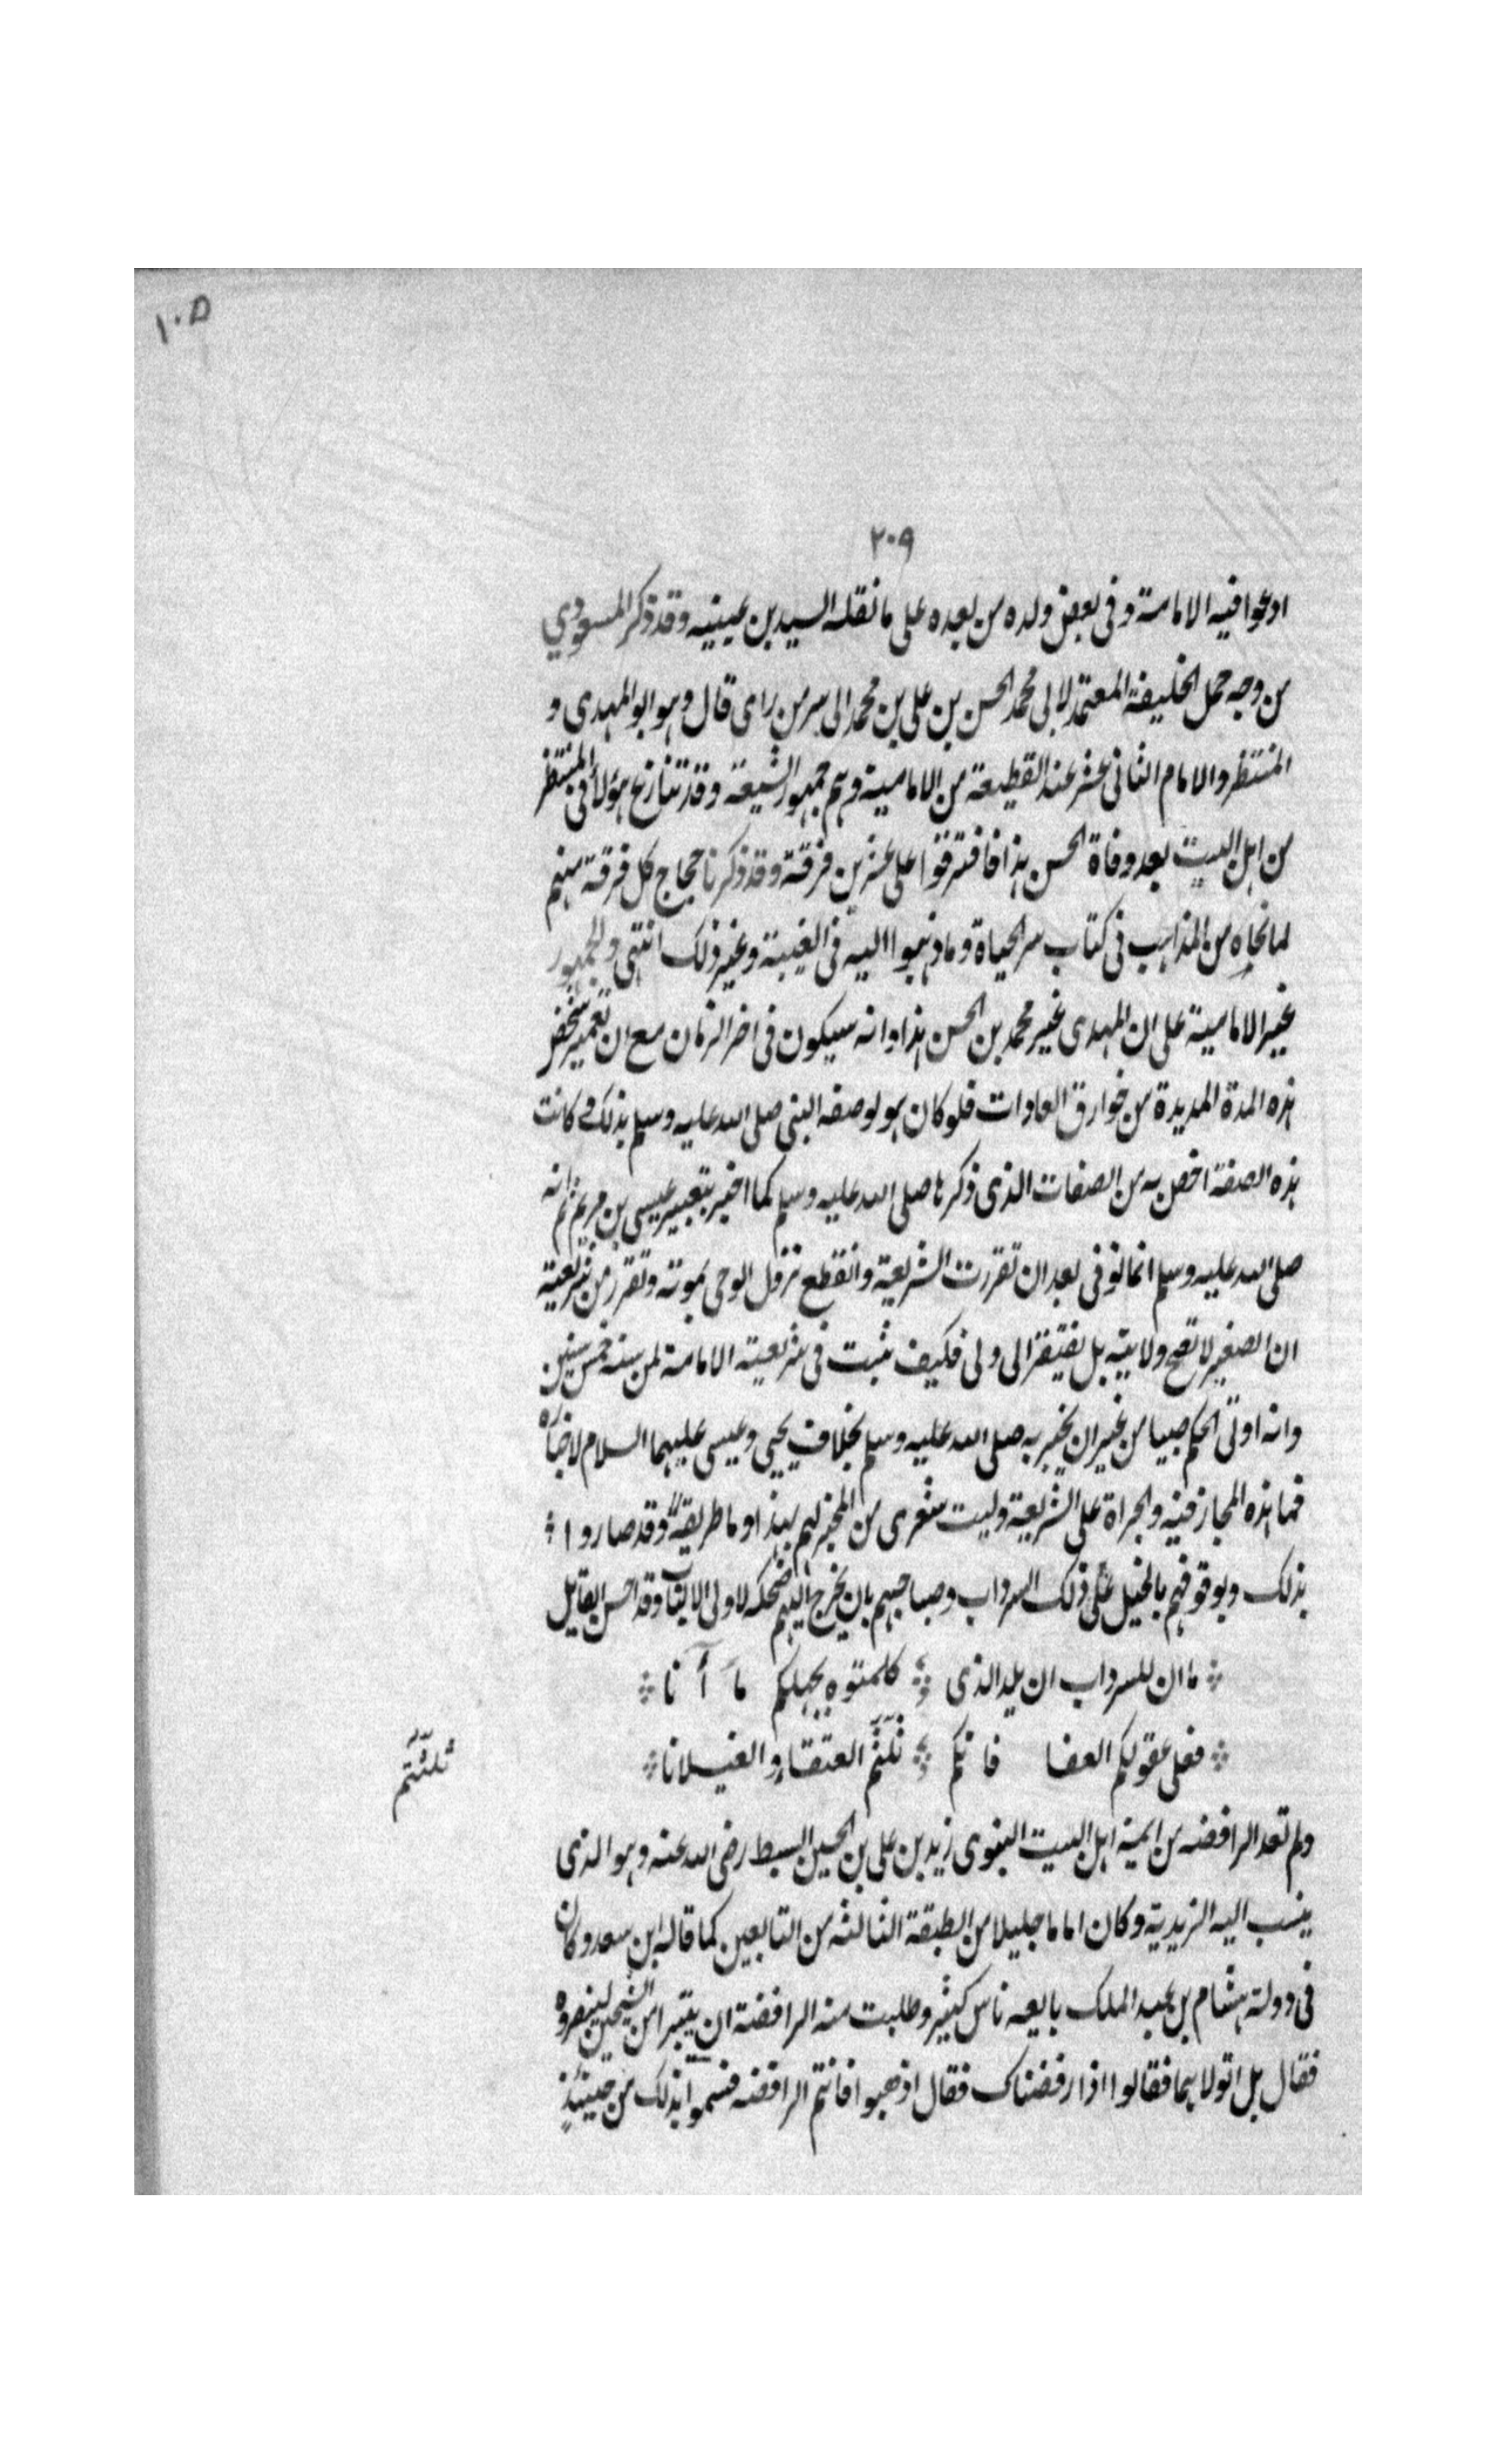 ١٠٥
٢٠٩
ادعوا فيه الامامة وفى بعض ولده من بعده على ما نقله السيد بن عيينه وقد ذكر المسعودي
من وجه حمل الخليفة المعتمد لابى محمد الحسن بن على بن محمد الى سر من راى قال وهو ابو المهدى و
المنتظر والامام الثانى عشر عند القطيعة من الامامية وهم جمهور الشيعة وقد تنازع هؤلاء فى المنتظر
من اهل البيت بعد وفاة الحسن هذا فافترقوا على عشرين فرقة وقد ذكرنا حجاج كل فرقة منهم
لما نحاه من المذاهب فى كتاب سر الحياة وما ذهبوا اليه فى الغيبة وغير ذلك انتهى والجمهور
غير الامامية على ان المهدى غير محمد بن الحسن هذا وانه سيكون فى اخر الزمان مع ان تعمير شخص
هذه المدة المديدة من خوارق العادات فلو كان هو لوصفه النبى صلى الله عليه وسلم بذلك وكانت
هذه الصفة اخص به من الصفات الذى ذكرها صلى الله عليه وسلم كما اخبر بتعبير عيسى بن مريم ثم انه
صلى الله عليه وسلم انما توفى بعد ان تقررت الشريعة وانقطع نزول الوحى بموته وتقرر من شريعته
ان الصغير لا تصح ولايته بل يفتقر الى ولى فكيف ثبت فى شريعته الامامة لمن سنه خمس سنين
وانه اوتى الحكم صبيا من غير ان يخبر به صلى الله عليه وسلم بخلاف يحيى وعيسى عليهما السلام لاخباره
فما هذه المجازفيه والجراة على الشريعة وليت شعرى من المخبر لهم بهذا وما طريقه وقد صاروا
بذلك وبوقوفهم بالخيل على ذلك السرداب وصياحهم بان يخرج اليهم ضحكة لاولى الالباب وقد احسن القايل
ما ان للسرداب ان يلد الذى كلمتوه بجهلكم ما آنا
فعلى عقولكم العفا فانكم ثلثتم العنقاء والغيلانا
ثلثتم
ولم تعد الرافضه من ايمة اهل البيت النبوى زيد بن على بن الحسين السبط رضى الله عنه وهو الذى
ينسب اليه الزيدية وكان اماما جليلا من الطبقة الثالثه من التابعين كما قاله ابن سعد وكان
فى دولة هشام بن عبد الملك بايعه ناس كثير وطلبت منه الرافضة ان يتبرا من الشيخين لينصروه
فقال بل اتولاهما فقالوا اذا رفضناك فقال اذهبوا فانتم الرافضه فسموا بذلك من حينئذ